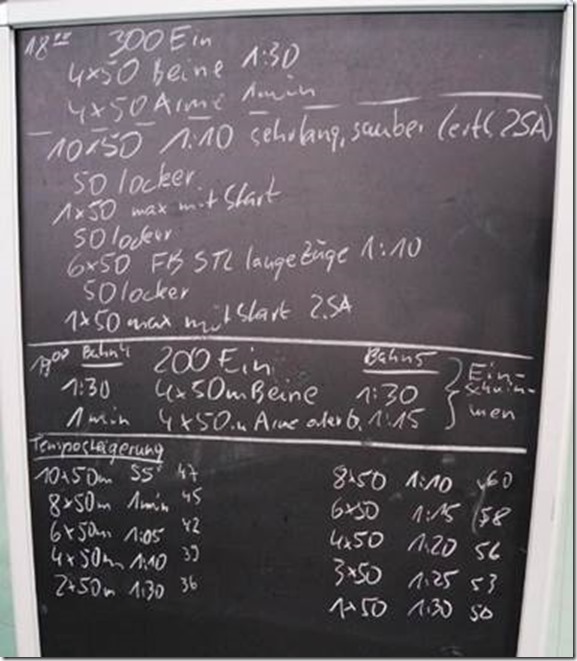 18⁰⁰ 300 Ein
4x50 Beine 1:30
4x50 Arme 1min
10x50 1:10 sehr lang, sauber (evtl 2SA)
50 locker
1x50 max mit Start
50 locker
6x50 FB STL lange Züge 1:10
50 locker
1x50 max mit Start 2.SA
19⁰⁰ Bahn 4 200 Ein Bahn 5
1:30 4x50m Beine 1:30
1min 4x50m Arme oder b. 1:15
Ein-
schwim-
men
Temposteigerung
10x50m 55' 47
8x50m 1min 45
6x50m 1:05 42
4x50m 1:10 39
2x50m 1:30 36
8x50 1:10 60
6x50 1:15 58
4x50 1:20 56
3x50 1:25 53
1x50 1:30 50